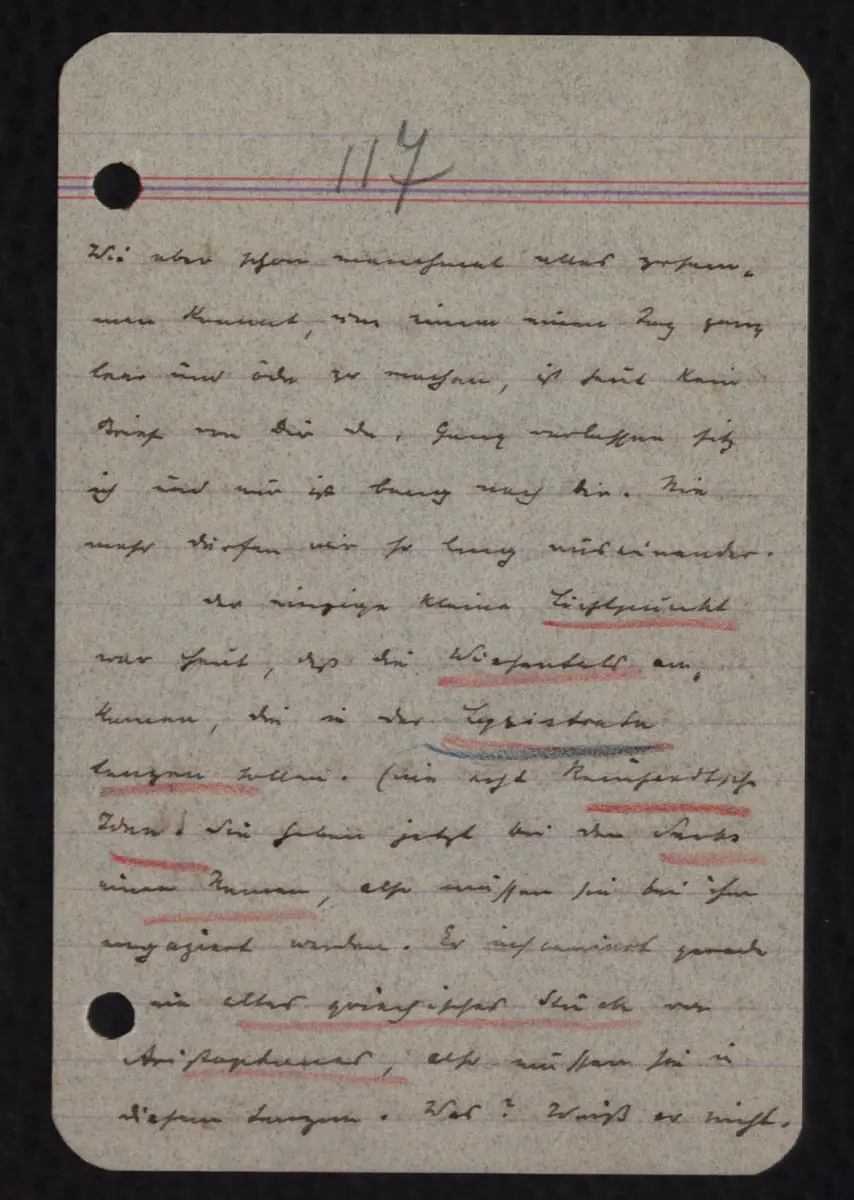 117
Wie aber schon manchmal alles zusam„
men kommt, um einem einen Tag ganz
leer und öde zu machen, ist heut kein
Brief von Dir da. Ganz verlassen sitz
ich und mir ist bang nach Dir. Nie
mehr dürfen wir so lang auseinander.
Der einzige kleine Lichtpunkt
war heut, daß die Wiesenthals an„
kamen, die in der Lysistrata
tanzen sollen. (eine echt Reinhardtsche
Idee! Sie haben jetzt bei den
einen Namen, also müssen sie bei ihm
engagiert werden. Er insceniert gerade
ein altes griechisches Stück von
Aristophanes, also müssen sie in
diesem tanzen. Was? Weiß er nicht.